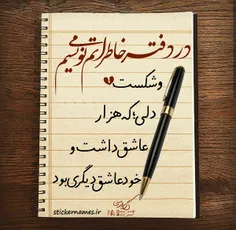 در دفتر خاطراتم نویسم
و شکست
دلی؛ که هزار
عاشق داشت و
خود عاشق دیگری بود
stickernames.ir